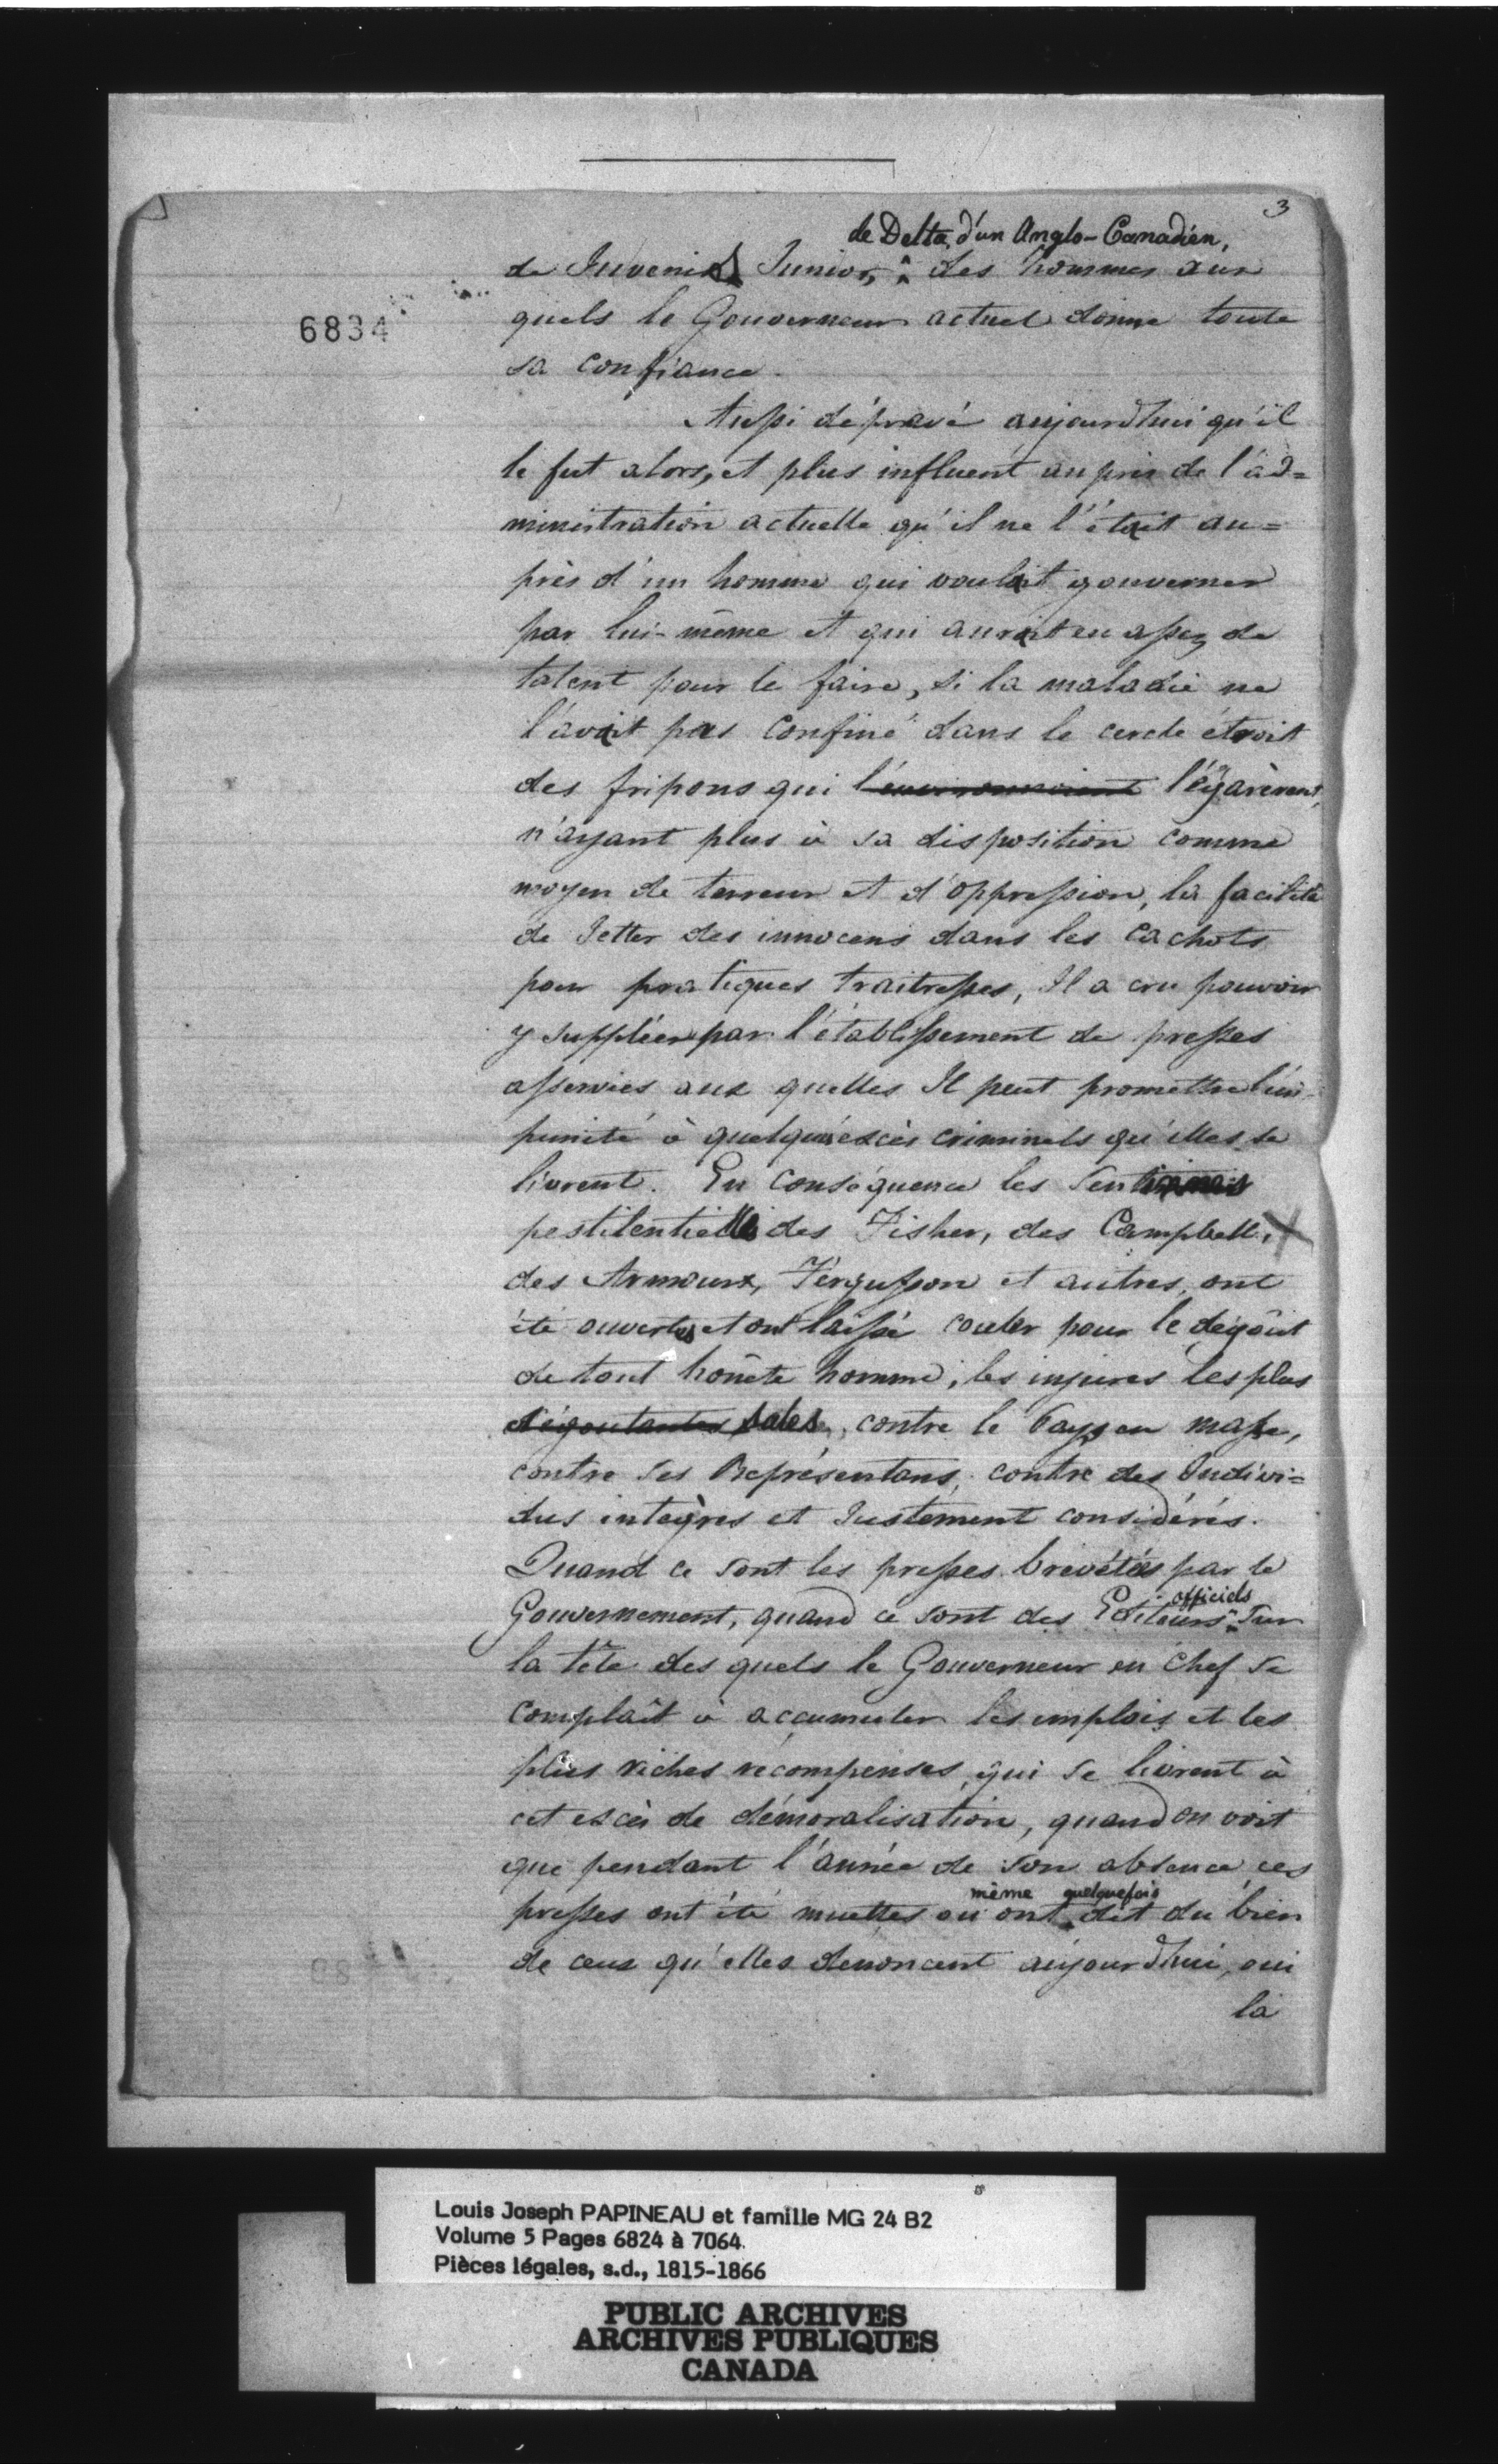 3
de Delta, d'un Anglo-Canadien,
de Juvenis Junior, ^ des hommes aux
6834
quels le Gouverneur actuel donne toute
sa confiance.
Aussi dépravé aujourdhui qu'il
le fut alors, et plus influent auprès de l'ad=
ministration actuelle qu'il ne l'était au=
près d'un homme qui voulait gouverner
par lui-même et qui aurait eu assez de
talent pour le faire, si la maladie ne
l'avait pas confiné dans le cercle étroit
des fripons qui l'environnoient l'égarèrent,
n'ayant plus à sa disposition comme
moyen de terreur et d'oppression, la facilité
de Jetter des innocens dans les cachots
pour pratiques traitresses, Il a cru pouvoir
y suppléer par l'établissement de presses
asservies aux quelles Il peut promettre l'im-
punité à quelqu'excès criminels qu'elles se
livrent. En conséquence les
pestilentielles des Fisher, des Campbell, X
des Armour, Fergusson et autres, ont
été ouvertes et ont laissé couler pour le dégoût
de tout honête homme, les injures les plus
dégoutantes sales, contre le Pays en masse,
contre ses Représentans, contre des Indivi=
dus intègres et Justement considérés.
Quand ce sont les presses brevétées par le
officiels
Gouvernement, quand ce sont des Editeurs ^ sur
la tête des quels le Gouverneur en Chef se
complait à accumuler les emplois et les
plus riches récompenses, qui se livrent à
cet excès de démoralisation, quand on voit
que pendant l'année de son absence ces
même quelquefois
presses ont été muettes ou ont ^ dit du bien
de ceux qu'elles denoncent aujourdhui, oui
la
Louis Joseph PAPINEAU et famille MG 24 B2
Volume 5 Pages 6824 à 7064.
Pièces légales, s.d., 1815-1866
PUBLIC ARCHIVES
ARCHIVES PUBLIQUES
CANADA